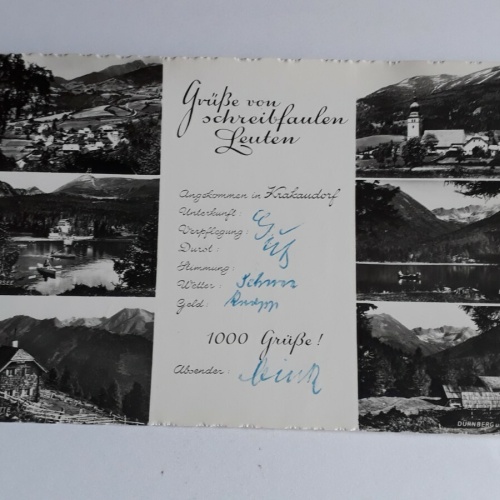 Grüße von
schreibfaulen
Leuten
Angekommen in Krakaudorf
Unterkunft:
Verpflegung:
Durst:
Stimmung:
Gut
Wetter: Schön
Geld: Knapp
1000 Grüße!
Absender:
DÜRNBERG